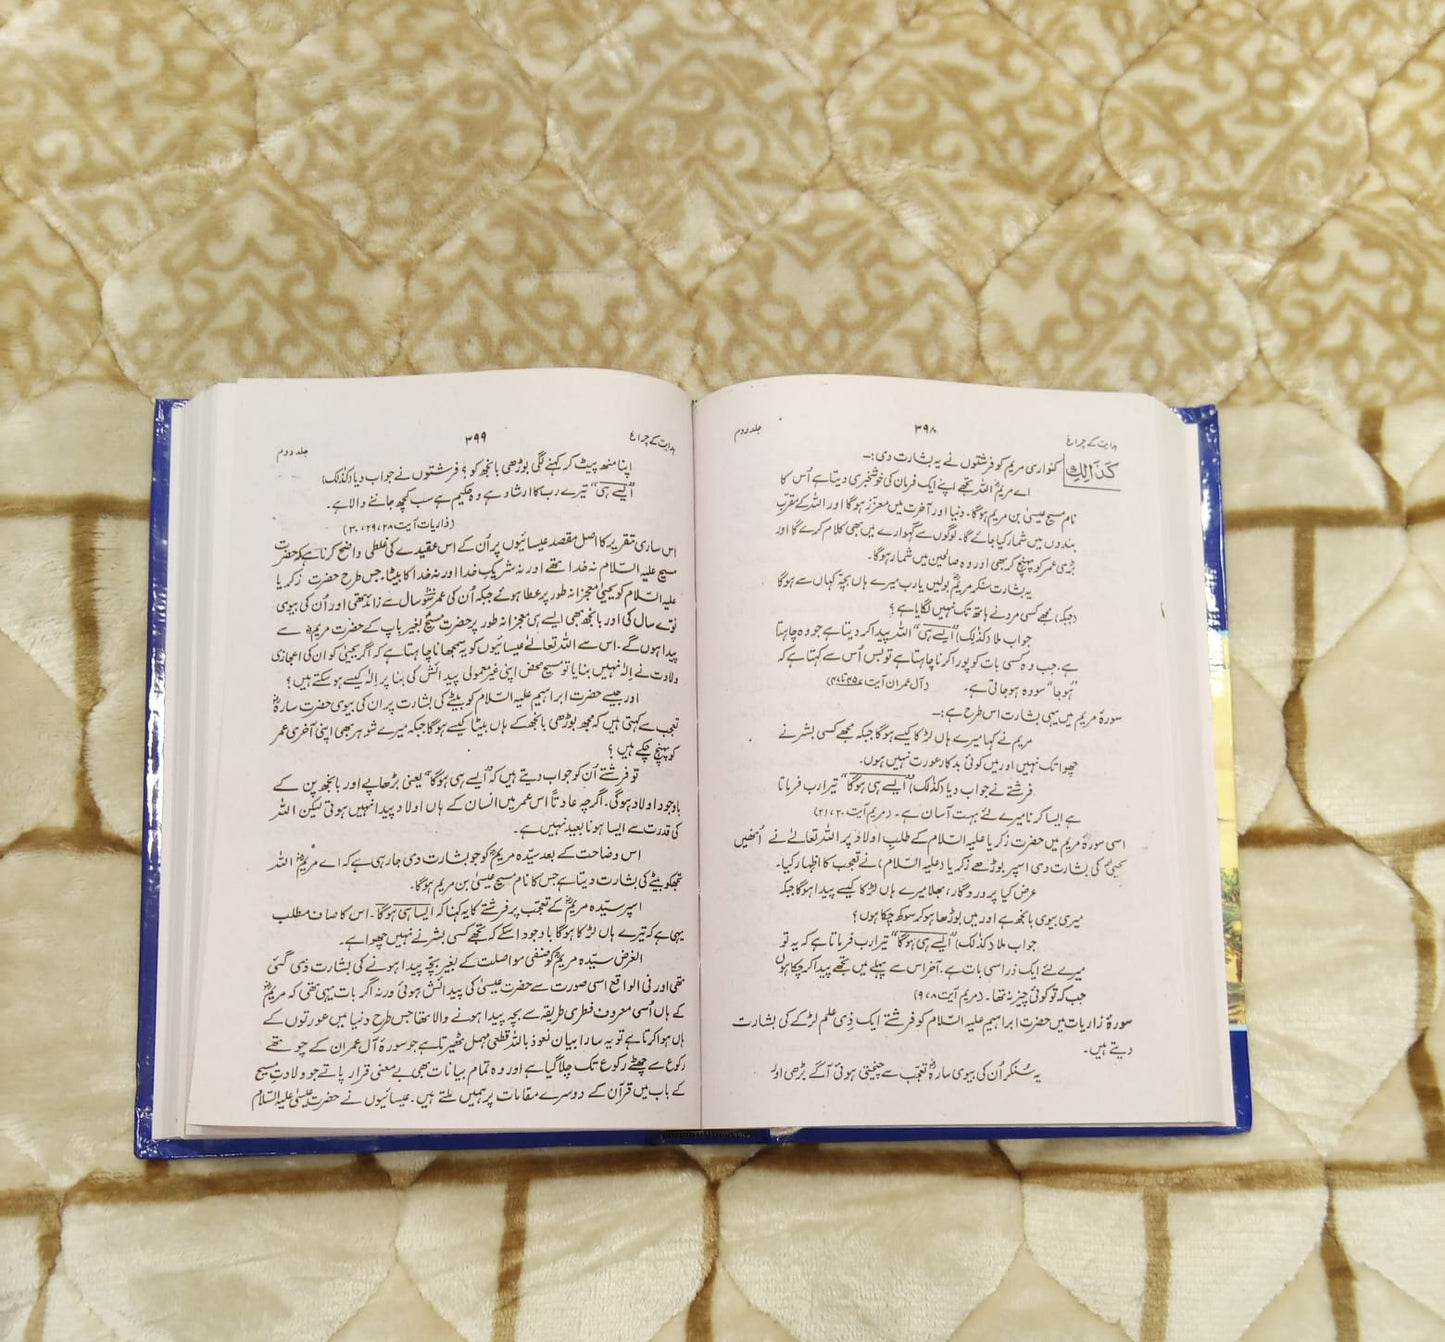 ہدایت کے چراغ ۳۹۸ جلد دوم
كَذَالِكِ کنواری مریم کو فرشتوں نے یہ بشارت دی:-
اے مریمؑ اللہ تجھے اپنے ایک فرمان کی خوشخبری دیتا ہے اُس کا
نام مسیح عیسیٰ بن مریم ہوگا۔ دنیا اور آخرت میں معزز ہوگا اور اللہ کے مقرب
بندوں میں شمار کیا جائے گا۔ لوگوں سے گہوارے میں بھی کلام کرے گا اور
بڑی عمر کو پہنچ کر بھی اور وہ صالحین میں شمار ہوگا۔
یہ بشارت سنکر مریمؑ بولیں یارب میرے ہاں بچہ کہاں سے ہوگا
(جبکہ) مجھے کسی مرد نے ہاتھ تک نہیں لگایا ہے؟
جواب ملا (کذٰلِک) "ایسے ہی" اللہ پیدا کر دیتا ہے جو وہ چاہتا
ہے۔ جب وہ کسی بات کو پورا کرنا چاہتا ہے تو بس اُس سے کہتا ہے کہ
"ہوجا" سو وہ ہو جاتی ہے۔ (آل عمران آیت ۴۵ تا ۴۷)
سورۂ مریم میں یہی بشارت اس طرح ہے:-
مریم نے کہا میرے ہاں لڑکا کیسے ہوگا جبکہ مجھے کسی بشر نے
چھوا تک نہیں اور میں کوئی بدکار عورت نہیں ہوں۔
فرشتے نے جواب دیا (کذٰلِک) "ایسے ہی ہوگا" تیرا رب فرماتا
ہے ایسا کرنا میرے لئے بہت آسان ہے۔ (مریم آیت ۲۰، ۲۱)
اسی سورۂ مریم میں حضرت زکریا علیہ السّلام کے طلب اولاد پر اللہ تعالےٰ نے اُنھیں
یحییٰؑ کی بشارت دی اسپر بوڑھے زکریا (علیہ السّلام) نے تعجب کا اظہار کیا۔
عرض کیا پروردگار، بھلا میرے ہاں لڑکا کیسے پیدا ہوگا جبکہ
میری بیوی بانجھ ہے اور میں بوڑھا ہو کر سوکھ چکا ہوں؟
جواب ملا (کذٰلِک) "ایسے ہی ہوگا" تیرا رب فرماتا ہے کہ یہ تو
میرے لئے ایک ذراسی بات ہے۔ آخر اس سے پہلے میں تجھے پیدا کر چکا ہوں
جب کہ تو کوئی چیز نہ تھا۔ (مریم آیت ۸، ۹)
سورۂ زاریات میں حضرت ابراہیم علیہ السّلام کو فرشتے ایک ذی علم لڑکے کی بشارت
دیتے ہیں۔
یہ سُنکر اُن کی بیوی سارہؑ تعجب سے چیختی ہوئی آگے بڑھی اور
ہدایت کے چراغ ۳۹۹ جلد دوم
اپنا منھ پیٹ کر کہنے لگی بوڑھی بانجھ کو؟ فرشتوں نے جواب دیا (کذٰلِک)
"ایسے ہی" تیرے رب کا ارشاد ہے وہ حکیم ہے سب کچھ جاننے والا ہے۔
(ذاریات آیت ۲۸، ۲۹، ۳۰)
اس ساری تقریر کا اصل مقصد عیسائیوں پر اُن کے اس عقیدے کی غلطی واضح کرنا ہے کہ حضرت
مسیح علیہ السّلام نہ خدا تھے اور نہ شریکِ خدا اور نہ خدا کا بیٹا۔ جس طرح حضرت زکریا
علیہ السّلام کو یحییٰؑ معجزانہ طور پر عطا ہوئے جبکہ اُن کی عمر سو سال سے زائد تھی اور اُن کی بیوی
نوّے سال کی اور بانجھ بھی ایسے ہی معجزانہ طور پر حضرت مسیحؑ بغیر باپ کے حضرت مریمؑ سے
پیدا ہوں گے۔ اس سے اللہ تعالےٰ عیسائیوں کو یہ سمجھانا چاہتا ہے کہ اگر یحییٰؑ کو ان کی اعجازی
ولادت نے اِلٰہ نہیں بنایا تو مسیح محض اپنی غیر معمولی پیدائش کی بنا پر اِلٰہ کیسے ہو سکتے ہیں؟
اور جیسے حضرت ابراہیم علیہ السّلام کو بیٹے کی بشارت پر ان کی بیوی حضرت سارہؑ
تعجب سے کہتی ہیں کہ مجھ بوڑھی بانجھ کے ہاں بیٹا کیسے ہوگا جبکہ میرے شوہر بھی اپنی آخری عمر
کو پہنچ چکے ہیں؟
تو فرشتے اُن کو جواب دیتے ہیں کہ "ایسے ہی ہوگا" یعنی بڑھاپے اور بانجھ پن کے
باوجود اولاد ہوگی۔ اگرچہ عادتاً اس عمر میں انسان کے ہاں اولاد پیدا نہیں ہوتی لیکن اللہ
کی قدرت سے ایسا ہونا بعید نہیں ہے۔
اس وضاحت کے بعد سیّدہ مریمؑ کو جو بشارت دی جارہی ہے کہ اے مریمؑ اللہ
تجھکو بیٹے کی بشارت دیتا ہے جس کا نام مسیح عیسیٰ بن مریم ہوگا۔
اسپر سیّدہ مریمؑ کے تعجب پر فرشتے کا یہ کہنا کہ ایسا ہی ہوگا۔ اس کا صاف مطلب
یہی ہے کہ تیرے ہاں لڑکا ہوگا باوجود اسکے کہ تجھے کسی بشر نے نہیں چھوا ہے۔
الغرض سیّدہ مریمؑ کو صنفی مواصلت کے بغیر بچّہ پیدا ہونے کی بشارت دی گئی
تھی اور فی الواقع اسی صورت سے حضرت عیسیٰؑ کی پیدائش ہوئی ورنہ اگر بات یہی تھی کہ مریمؑ
کے ہاں اُسی معروف فطری طریقہ سے بچہ پیدا ہونے والا تھا جس طرح دنیا میں عورتوں کے
ہاں ہوا کرتا ہے تو یہ سارا بیان نعوذ باللہ قطعی مہمل ٹھیرتا ہے جو سورۂ آل عمران کے چوتھے
رکوع سے چھٹے رکوع تک چلا گیا ہے اور وہ تمام بیانات بھی بے معنی قرار پاتے جو ولادتِ مسیح
کے باب میں قرآن کے دوسرے مقامات پر ہمیں ملتے ہیں۔ عیسائیوں نے حضرت عیسیٰ علیہ السّلام